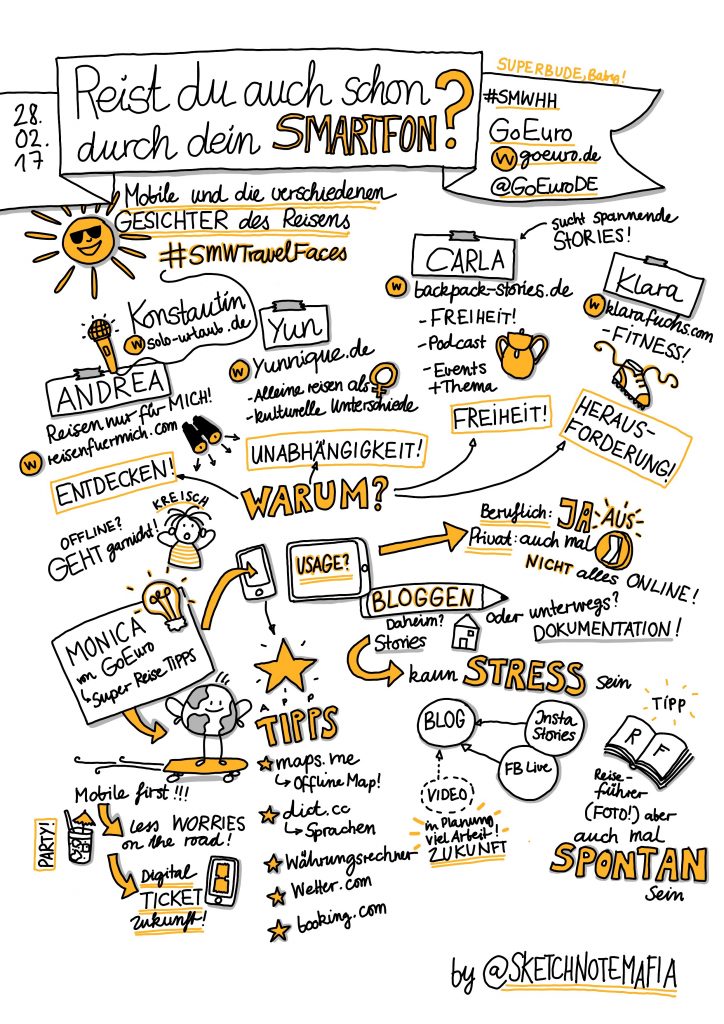 28.
02.
17
Reist du auch schon
durch dein SMARTFON?
SUPERBUDE, Baby!
#SMWHH
GoEuro
W goeuro.de
@GoEuroDE
Mobile und die verschiedenen
GESICHTER des Reisens
#SMWTravelFaces
Konstantin
W solo-urlaub.de
Yun
W Yunnique.de
-Alleine reisen als ♀
-kulturelle Unterschiede
CARLA
sucht spannende
STORIES!
W backpack-stories.de
-FREIHEIT!
-Podcast
-Events
+Thema
Klara
W klarafuchs.com
-FITNESS!
ANDREA
Reisen nur für MICH!
W reisenfuermich.com
ENTDECKEN!
UNABHÄNGIGKEIT!
FREIHEIT!
HERAUS-
FORDERUNG!
WARUM?
KREISCH
OFFLINE?
GEHT garnicht!
USAGE?
Beruflich: JA
Privat: auch mal AUS
NICHT alles ONLINE!
BLOGGEN
Daheim? oder unterwegs?
Stories
DOKUMENTATION!
kann STRESS sein
MONICA
von GoEuro
↳ Super Reise TIPPS
Mobile first!!!
PARTY!
Less WORRIES
on the road!
Digital
TICKET
Zukunft!
APP
TIPPS
maps.me
↳ Offline Map!
dict.cc
↳ Sprachen
Währungsrechner
Wetter.com
booking.com
BLOG
Insta
Stories
FB Live
VIDEO
in Planung
viel Arbeit!
ZUKUNFT
TIPP
R F
Reise-
führer
(FOTO!) aber
auch mal
SPONTAN
sein
by @SKETCHNOTEMAFIA